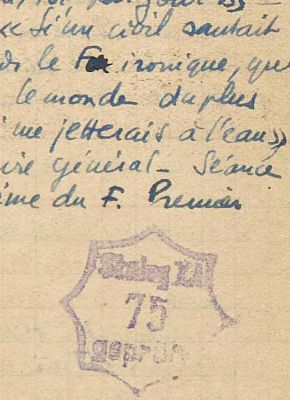 « Si un civil sautait
le F ironique, qu
le monde du plus
me jetterais à l'eau »
général - Séance
du F. Premier
Stalag XA
75
geprüft